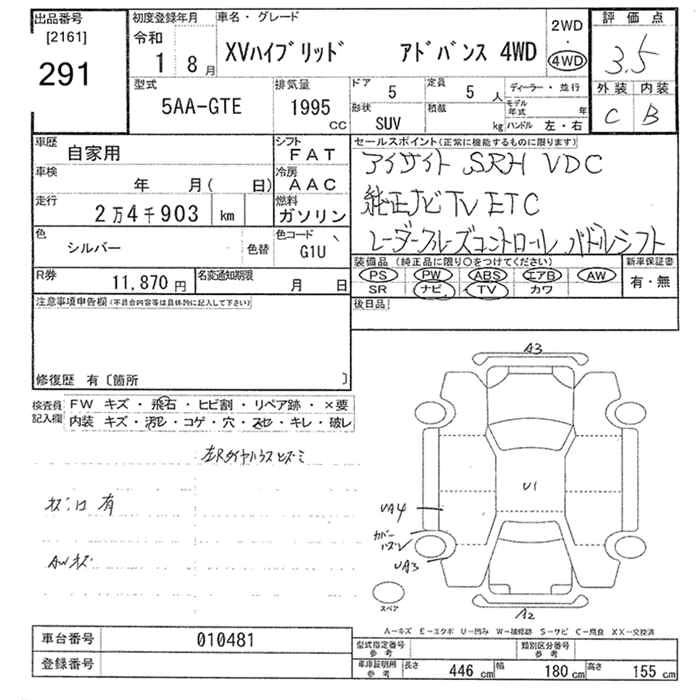 出品番号
[2161]
291
初度登録年月
令和
1 8月
車名・グレード
XVハイブリッド アドバンス 4WD
2WD
・
4WD
評価点
3.5
外装 内装
C B
型式
5AA-GTE
排気量
1995
CC
ドア
5
定員
5 人
形状
SUV
積載
kg
ディーラー・並行
モデル年式 年
ハンドル 左・右
車歴
自家用
シフト
FAT
車検
年 月( 日)
冷房
AAC
走行
2万4千903 km
燃料
ガソリン
色
シルバー
色替
色コード
G1U
R券
11,870円
名変通知期限
月 日
セールスポイント(正常に機能するものに限ります)
アイサイト SRH VDC
純正ナビ TV ETC
レーダークルーズコントロール パドルシフト
装備品(純正品に限り○をつけてください)
PS PW ABS エアB AW
SR ナビ TV カワ
新車保証書
有・無
後日品
注意事項申告欄(不具合内容等は具体的に記入して下さい)
修復歴 有〔箇所 〕
検査員記入欄
FW キズ・飛石・ヒビ割・リペア跡・×要
内装 キズ・汚レ・コゲ・穴・スレ・キレ・破レ
左Rタイヤハウスヒズミ
キズ凹有
AWキズ
A3
U1
UA4
カバーハズレ
UA3
A2
スペア
A-キズ E-エクボ U-凹み W-補修跡 S-サビ C-腐食 XX-交換済
車台番号
010481
登録番号
型式指定番号
参考
類別区分番号
参考
車庫証明用
参考
長さ 446 cm 幅 180 cm 高さ 155 cm